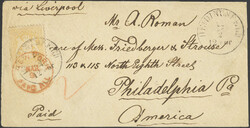 via Liverpool
Mr A. Roman
care of Mess. Friedberger & Strouse
110 & 115 North Eighth Street
Philadelphia Pa
Paid
America